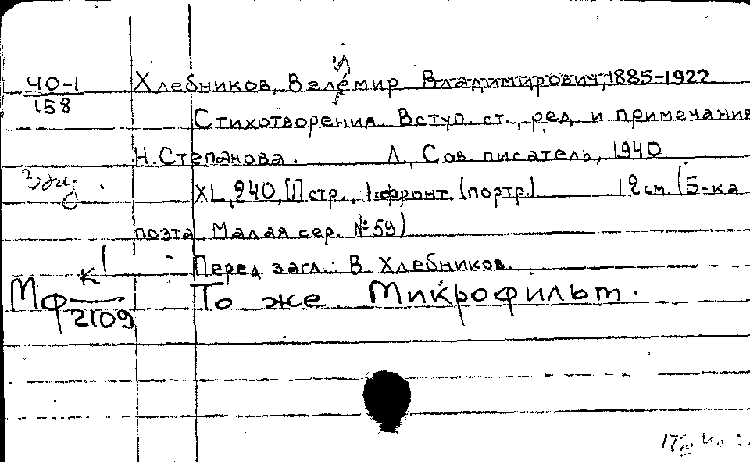 40-1 Хлебников, Велемир Владимирович, 1885-1922
158
Стихотворения. Вступ. ст., ред. и примечания
Н. Степанова. Л., Сов. писатель, 1940
XL, 240, [1] стр., 1 фронт. (портр.) 12 см. (Б-ка
поэта Малая сер. № 59)
Перед загл.: В. Хлебников.
Мф К 2109 То же Микрофильм.